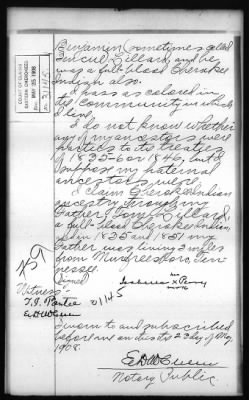 COURT OF CLAIMS
EASTERN CHEROKEES
MAY 25 1908
No. 21145
Benjamin sometimes called
Dillard, and he
was a full blood Cherokee
Indian also.
I pass as colored in
the community in which
I live.
I do not know whether
any of my ancestors were
parties to the treaties
of 1835-6 or 1846, but I
suppose my paternal
ancestors were.
I claim Cherokee Indian
ancestry through my
Father, Dillard,
a full blood Cherokee Indian,
in 1835 and 1851 my
father was living 3 miles
from Murfreesboro, Ten-
nessee.
Signed
her
x Perry
mark
759
Witness-
21145
Sworn to and subscribed
before me on this the 23 day of May,
1908.
Notary Public